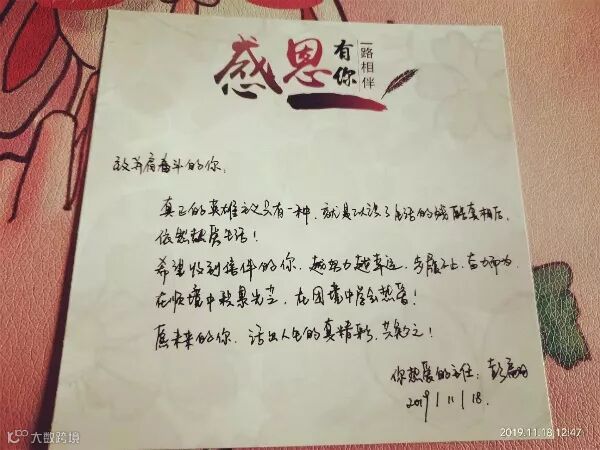 感恩
有你
一路相伴
致并肩奋斗的你:
真正的英雄主义只有一种,就是认清了生活的残酷真相后,
依然热爱生活!
希望收到信件的你,越努力越幸运,步履不止,奋力而为,
在顺境中收集光芒,在困境中学会热爱!
愿未来的你,活出人生的真精彩,共勉之!
你热爱的主任:彭
2019/11/18.
2019.11.18 12:47
大数跨境